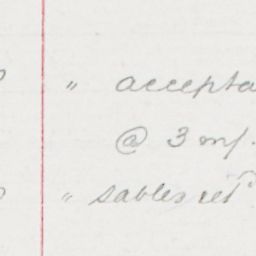 " accepta
@ 3 m/.
" sables retd